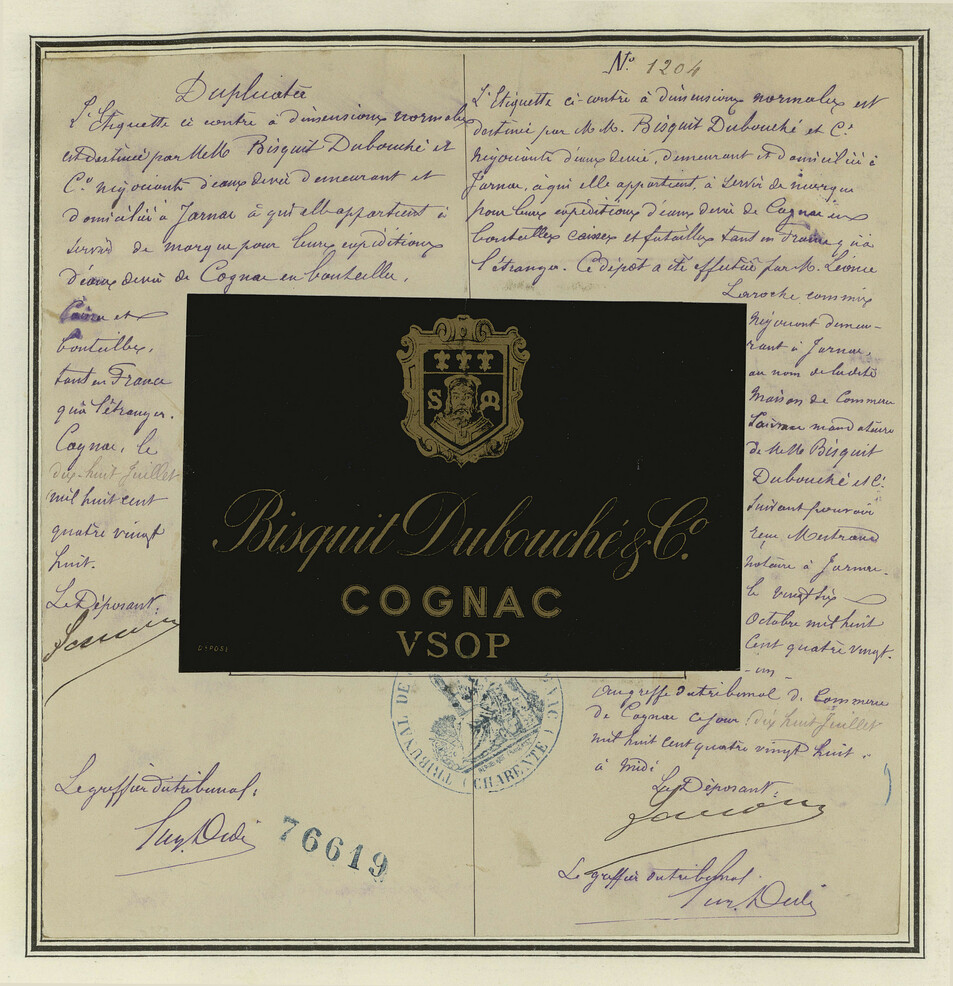 Duplicata
L'Etiquette ci contre à dimensions normales
est destinée par MM. Bisquit Dubouché et
Cº négociants d'eaux devie demeurant et
domiciliés à Jarnac à qui elle appartient à
servir de marque pour leurs expéditions
d'eaux devie de Cognac en bouteilles,
et
bouteilles,
tant en France
qu'à l'étranger.
Cognac, le
dix-huit Juillet
mil huit cent
quatre vingt
huit.
Le Déposant:
Le greffier du tribunal:
76619
Nº 1204
L'Etiquette ci-contre à dimensions normales est
destinée par M.M. Bisquit Dubouché et Cº
négociants d'eaux devie, demeurant et domiciliés à
Jarnac, à qui elle appartient, à servir de marque
pour leurs expéditions d'eaux devie de Cognac en
bouteilles caisses et futailles tant en France qu'à
l'étranger. Ce dépôt a été effectué par M. Léonce
Laroche commis
négociant demeu-
rant à Jarnac,
au nom de ladite
Maison de Commerce
mandataire
de MM. Bisquit
Dubouché et Cº
suivant pouvoir
reçu Mestreaud
notaire à Jarnac
le vingt six
Octobre mil huit
cent quatre vingt-
-un-
au greffe du tribunal de Commerce
de Cognac ce jour dix huit Juillet
mil huit cent quatre vingt huit.
à midi
Le Déposant:
Le greffier du tribunal.
S M
Bisquit Dubouché & Cº.
COGNAC
VSOP
DÉPOSÉ
TRIBUNAL DE
(CHARENTE)